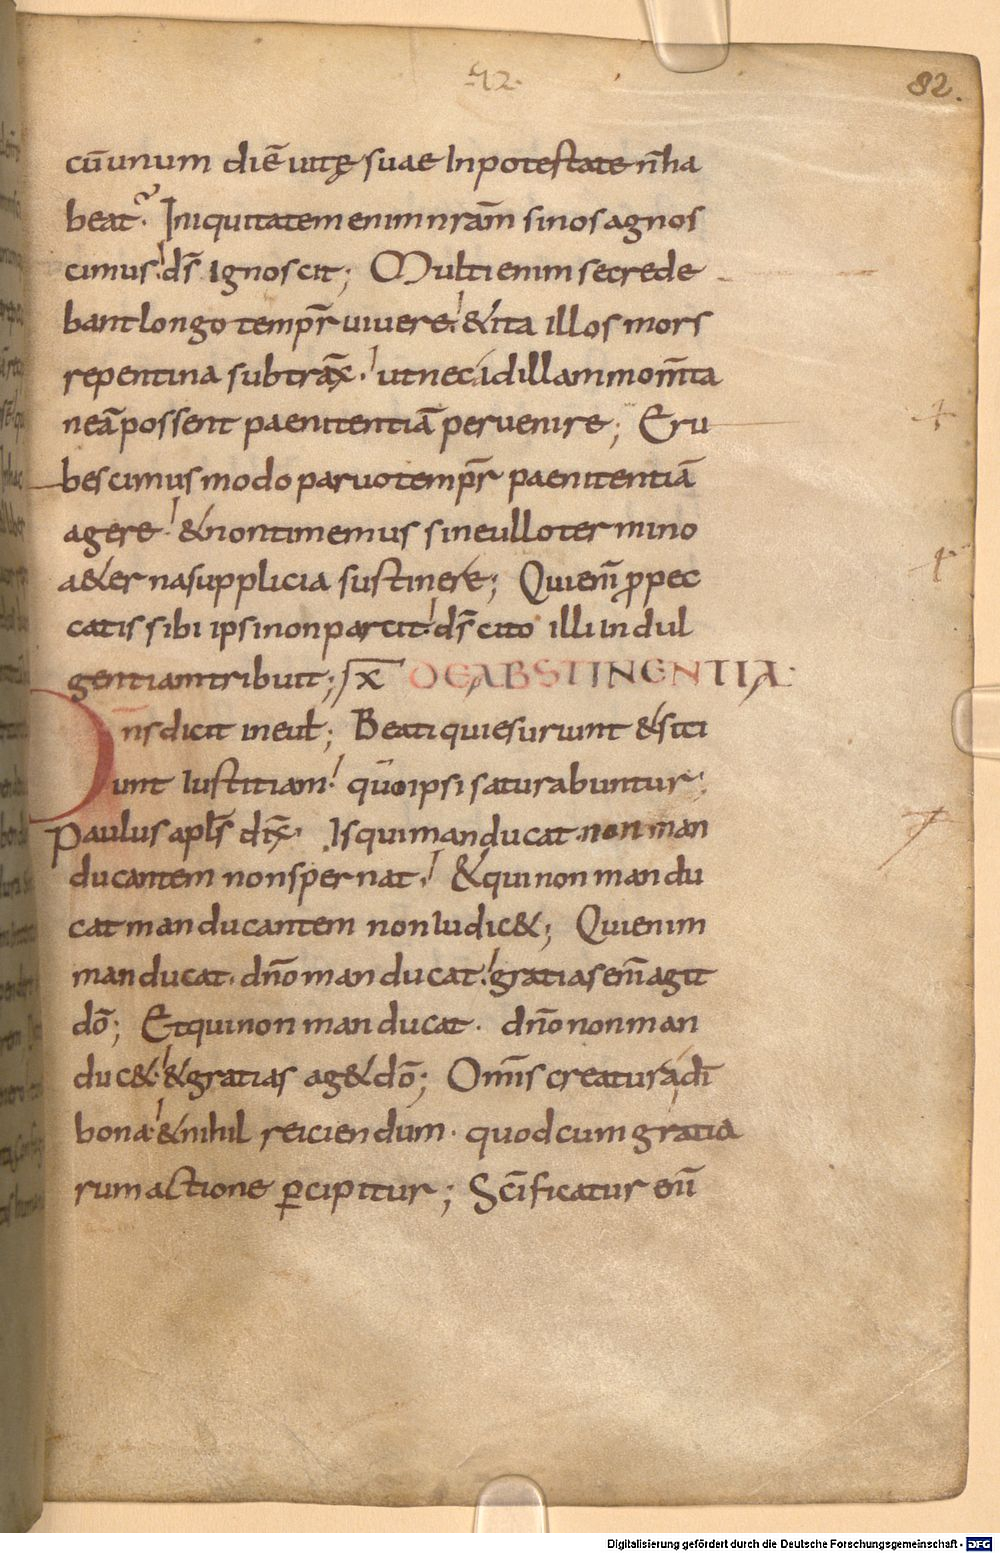 82.
cū unum diē uitę suae In potestate n̄ ha
beat? Iniquitatem enim nr̄am si nos agnos
cimus. ds̄ Ignoscit; Multi enim se crede
bant longo tempr̄ uiuere. & ita illos mors
repentina subtrāx. ut nec ad illam mom̄ta
neā possent paenitentiā peruenire; Eru
bescimus modo paruo tempr̄ paenitentiā
agere & non timemus sine ullo termino
a&erna supplicia sustinere; Qui em̄ ꝓ pec
catis sibi ipsi non parcit. ds̄ cito illi Indul
gentiam tribuit; x̄ DE ABSTINENTIA.
Dn̄s dicit in eul̄; Beati qui esuriunt & siti
unt Iustitiam. qūo ipsi saturabuntur;
Paulus apl̄s dix̄. Is qui manducat non man
ducantem non spernat. & qui non mandu
cat manducantem non Iudic&; Qui enim
manducat. dn̄o manducat. gratias em̄ agit
dō; Et qui non manducat. dn̄o non man
duc&. & gratias ag& dō; Om̄is creatura dī
bona. & nihil reiciendum. quod cum gratia
rum actione ꝑcipitur; Sc̄ificatur enī
Digitalisierung gefördert durch die Deutsche Forschungsgemeinschaft - DFG